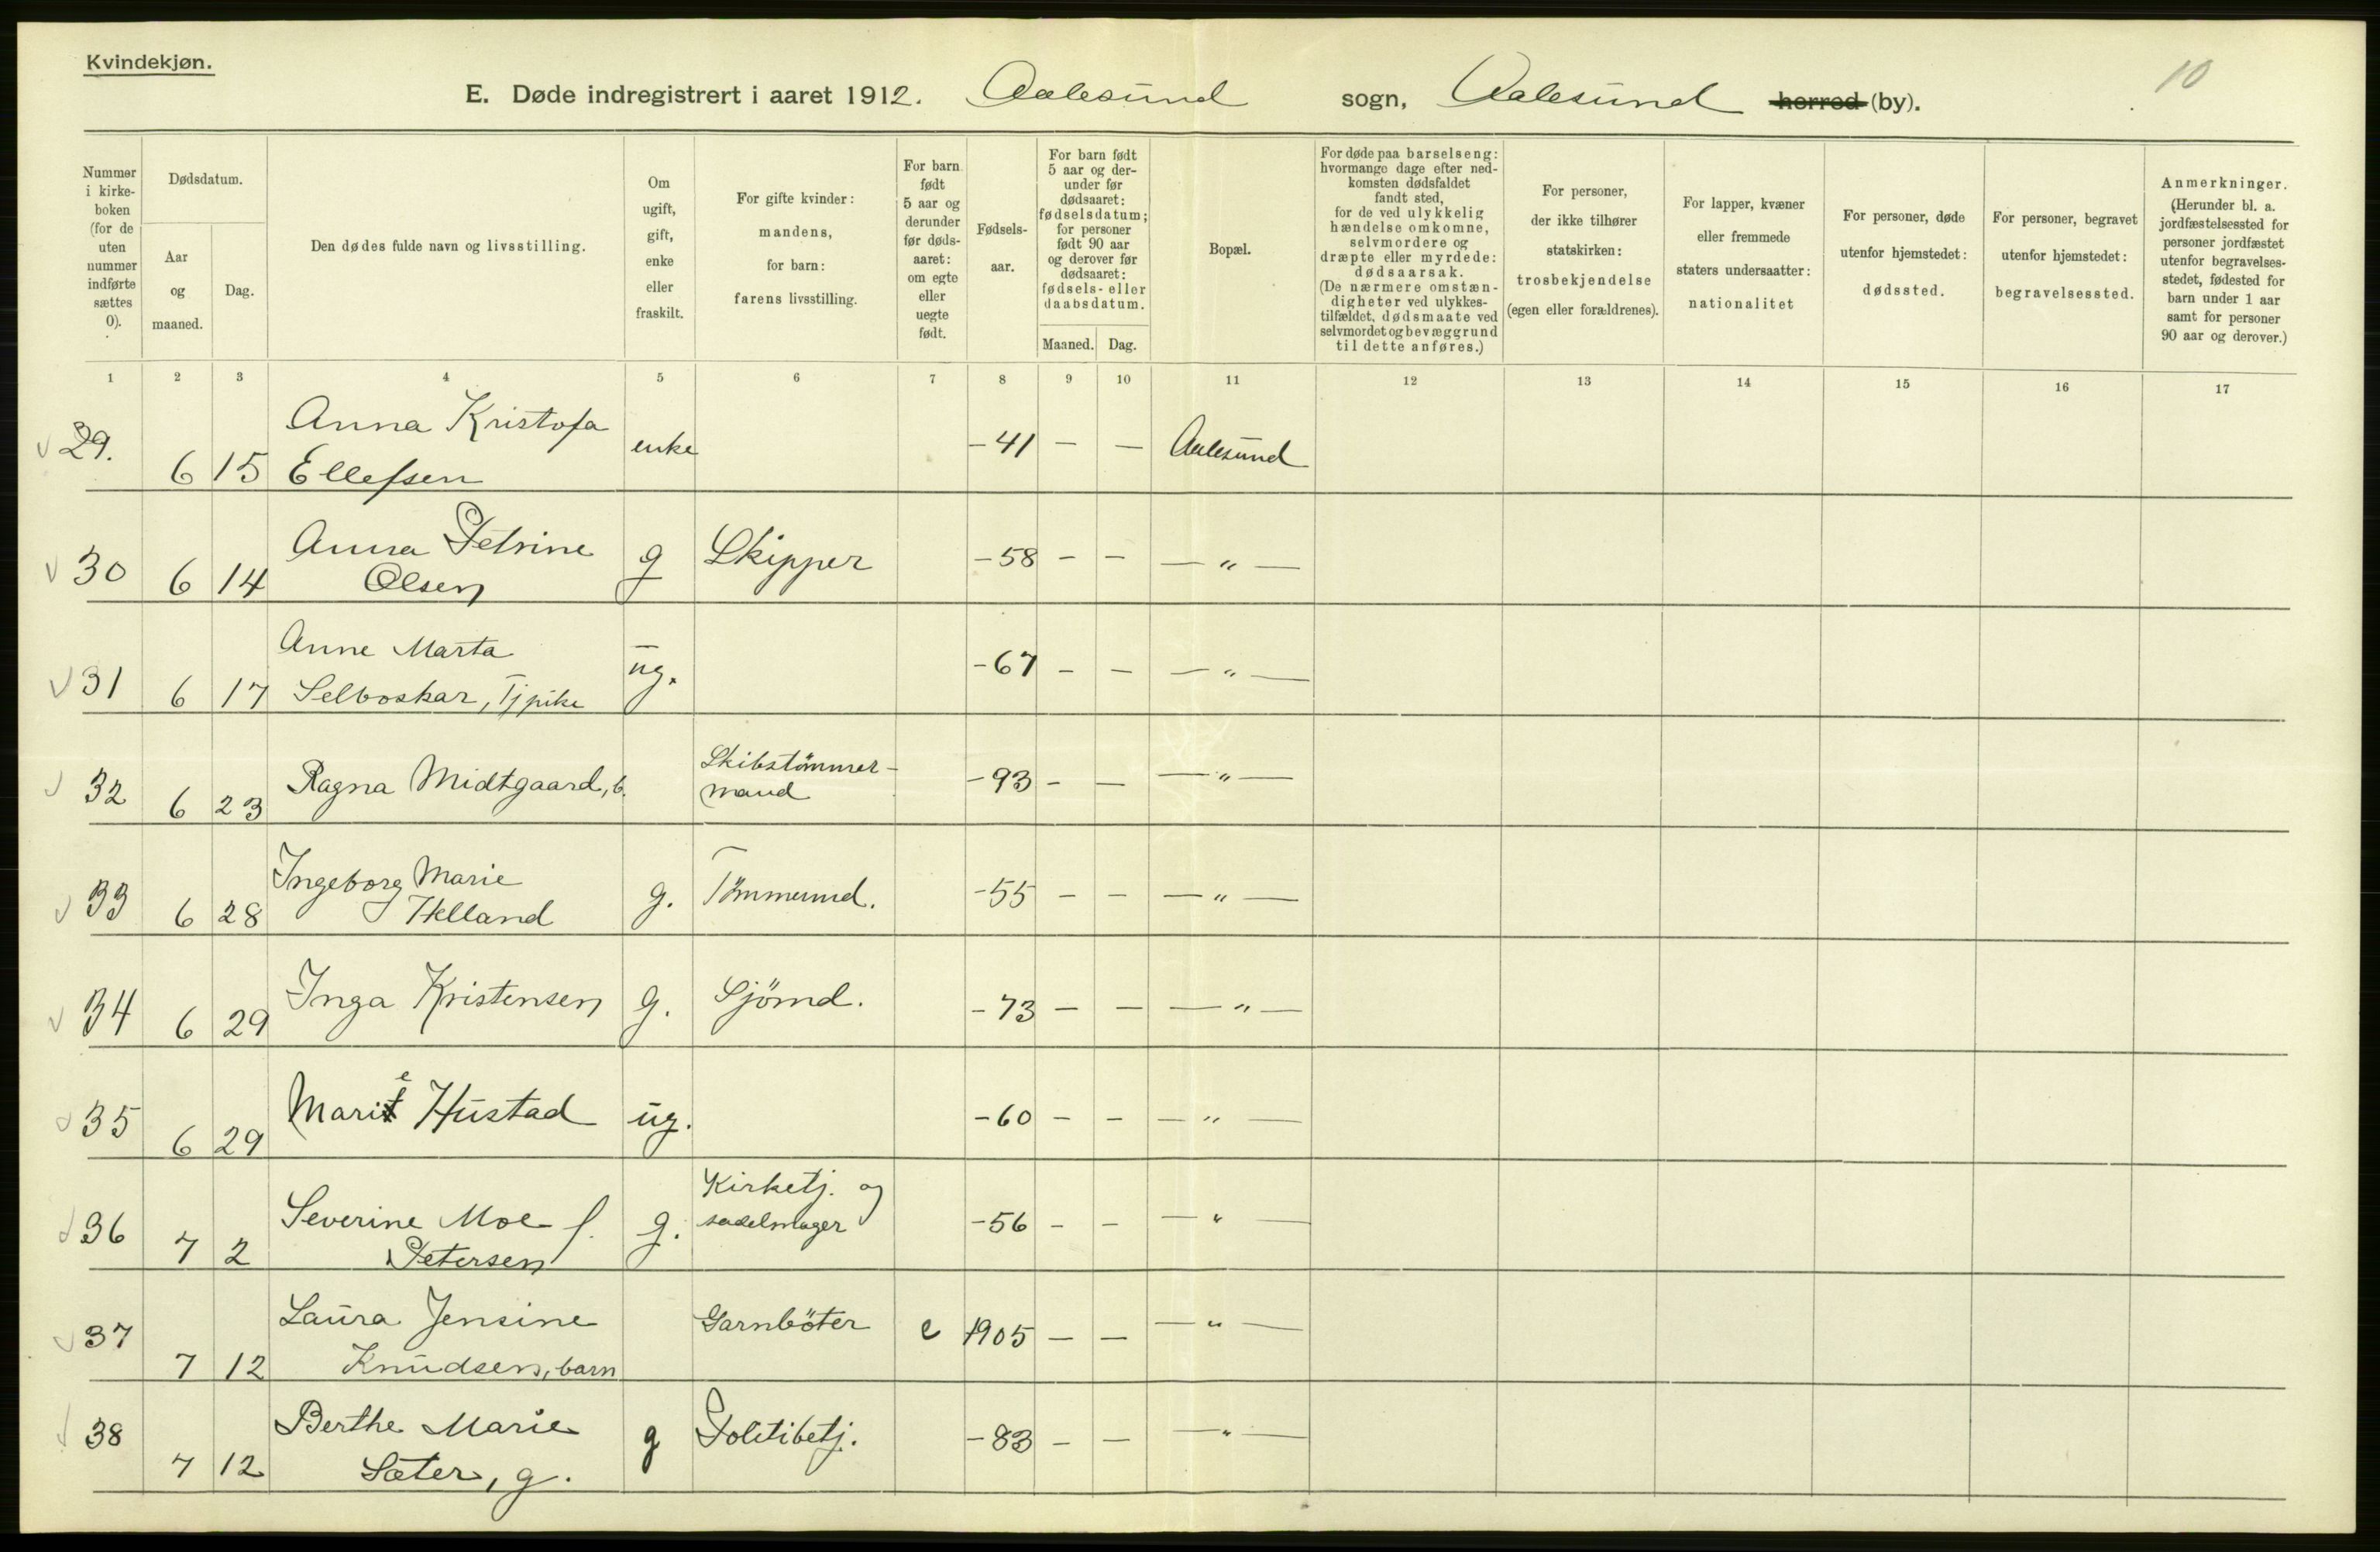 Kvindekjøn.
10
E. Døde indregistrert i aaret 1912. Aalesund sogn, Aalesund herred (by).
Nummer i kirke-boken (for de uten nummer indførte sættes 0).
Dødsdatum.
Aar og maaned.
Dag.
Den dødes fulde navn og livsstilling.
Om ugift, gift, enke eller fraskilt.
For gifte kvinder: mandens, for barn: farens livsstilling.
For barn født 5 aar og derunder før døds-aaret: om egte eller uegte født.
Fødsels-aar.
For barn født 5 aar og der-under før dødsaaret: fødselsdatum; for personer født 90 aar og derover før dødsaaret: fødsels- eller daabsdatum.
Maaned.
Dag.
Bopæl.
For døde paa barselseng: hvormange dage efter ned-komsten dødsfaldet fandt sted, for de ved ulykkelig hændelse omkomne, selvmordere og dræpte eller myrdede: dødsaarsak. (De nærmere omstæn-digheter ved ulykkes-tilfældet, dødsmaate ved selvmordet og bevæggrund til dette anføres.)
For personer, der ikke tilhører statskirken: trosbekjendelse (egen eller forældrenes).
For lapper, kvæner eller fremmede staters undersaatter: nationalitet
For personer, døde utenfor hjemstedet: dødssted.
For personer, begravet utenfor hjemstedet: begravelsessted.
Anmerkninger. (Herunder bl. a. jordfæstelsessted for personer jordfæstet utenfor begravelses-stedet, fødested for barn under 1 aar samt for personer 90 aar og derover.)
1 2 3 4 5 6 7 8 9 10 11 12 13 14 15 16 17
29. 6 15 Anna Kristofa Ellefsen enke -41 — — Aalesund
30 6 14 Anna Petrine Olsen g Skipper -58 — — — " —
31 6 17 Anne Marta Selboskar, Tjpike ug. -67 — — — " —
32 6 23 Ragna Midtgaard, b. Skibstömmer-mand -93 — — — " —
33 6 28 Ingeborg Marie Helland g. Tömmermd. -55 — — — " —
34 6 29 Inga Kristensen g. Sjömd. -73 — — — " —
35 6 29 Marie Hustad ug. -60 — — — " —
36 7 2 Severine Moe f. Petersen g. Kirketj. og sadelmager -56 — — — " —
37 7 12 Laura Jensine Knudsen, barn Garnböter e 1905 — — — " —
38 7 12 Berthe Marie Sæter, g. g Politibetj. -83 — — — " —